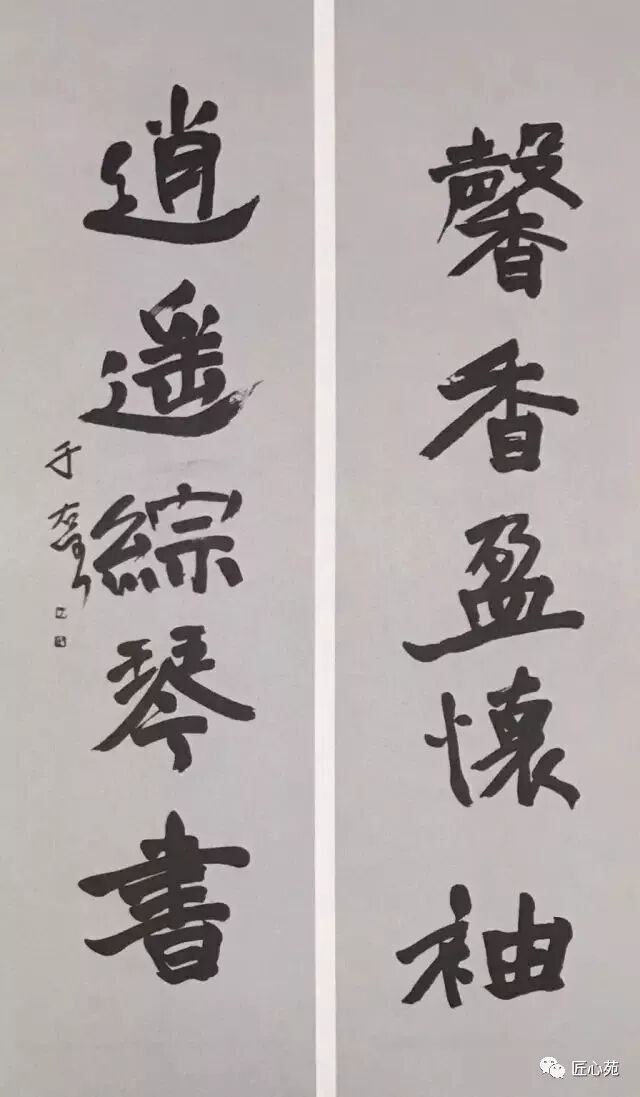 馨香盈懷袖
逍遥綜琴書
于右任
匠心苑